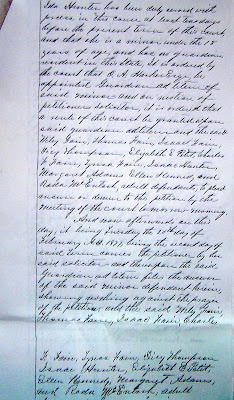 Ida Hunter has been duly served with
process in this cause at least ten days
before the present term of this court
and that she is a minor under the 18
years of age, and has no guardian
resident in this State. It is ordered by
the court that
appointed Guardian ad litem of
said minor, and on motion of
petitioners solicitor, it is ordered that
a rule of this court be granted upon
said guardian ad litem and the said
Wily Fain, Thomas Fain, Isaac Fain,
Dicy Thompson, Elizabeth E Petit, Charles
T. Fain, Tyrus Fain, Isaac Hunter,
Margaret Adams Ellen Kennedy, and
Rada McEntosh, adult defendants, to plead
answer or demur to the petition by the
meeting of the court tomorrow morning.
And now afterwards on this
day, it being Tuesday the 20th day of
February A.D. 1877, being the second day of
said term, comes the petitioner by his
said solicitor and thereupon the said
Guardian ad litem files the answer
of the said minor defendant herein,
showing nothing against the prayer
of the petition, and the said Wily Fain,
Thomas Fain, Isaac Fain, Charles
T. Fain, Tyrus Fain, Dicy Thompson
Isaac Hunter, Elizabeth E Petit,
Ellen Kennedy, Margaret Adams,
and Rada McEntosh, adult